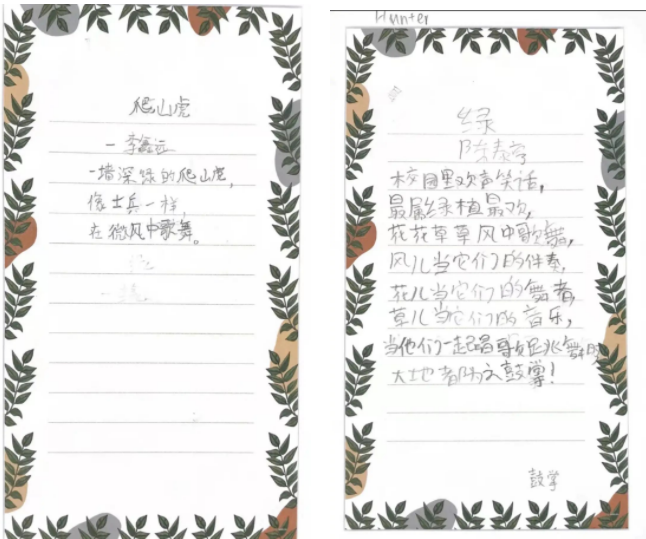 爬山虎
一李鑫远
一墙深绿的爬山虎,
像士兵一样,
在微风中歌舞。
Hunter
绿
校园里欢声笑语,
最属绿植最欢,
花花草草风中歌舞,
风儿当它们的伴奏,
花儿当它们的舞者,
草儿当它们的音乐,
当他们一起唱歌跳舞时
大地都为之鼓掌!
鼓掌